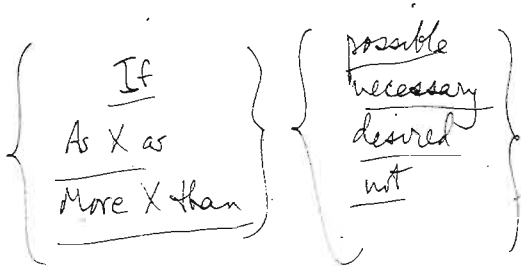 If
As X as
More X than
possible
necessary
desired
not